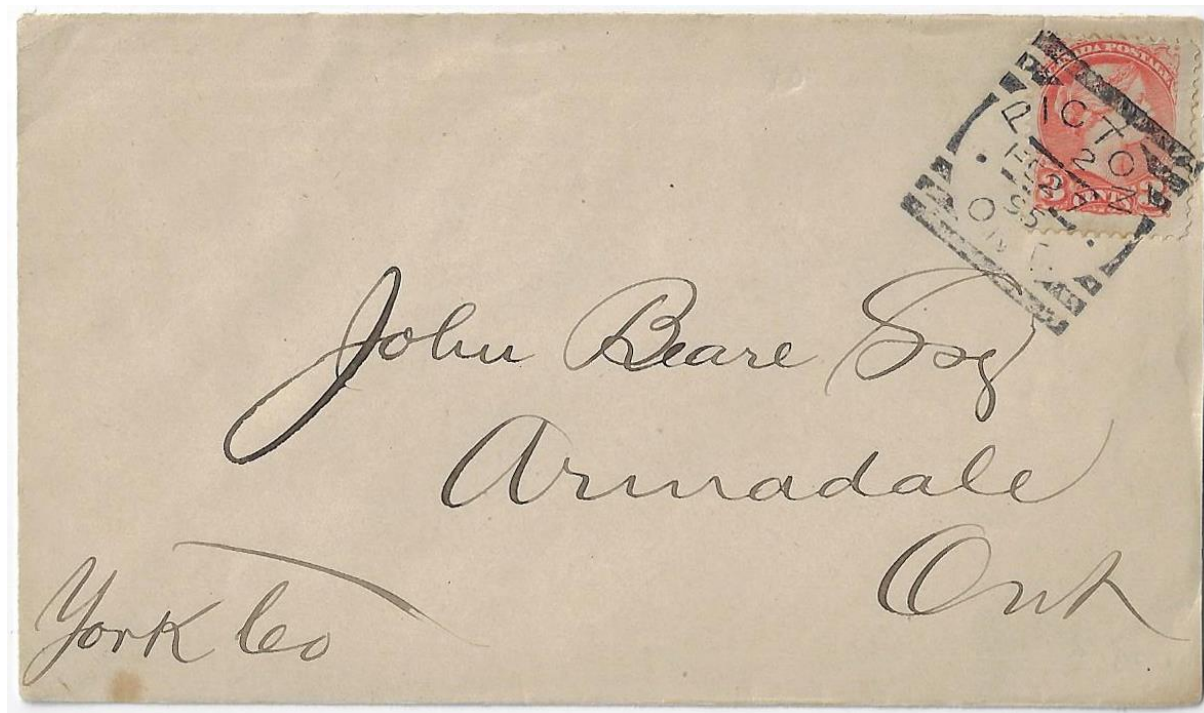 CANADA POSTAGE
PICTON
2
FE 27
95
ONT
3 CENTS 3
John Beare Esq
Armadale
Ont
York Co